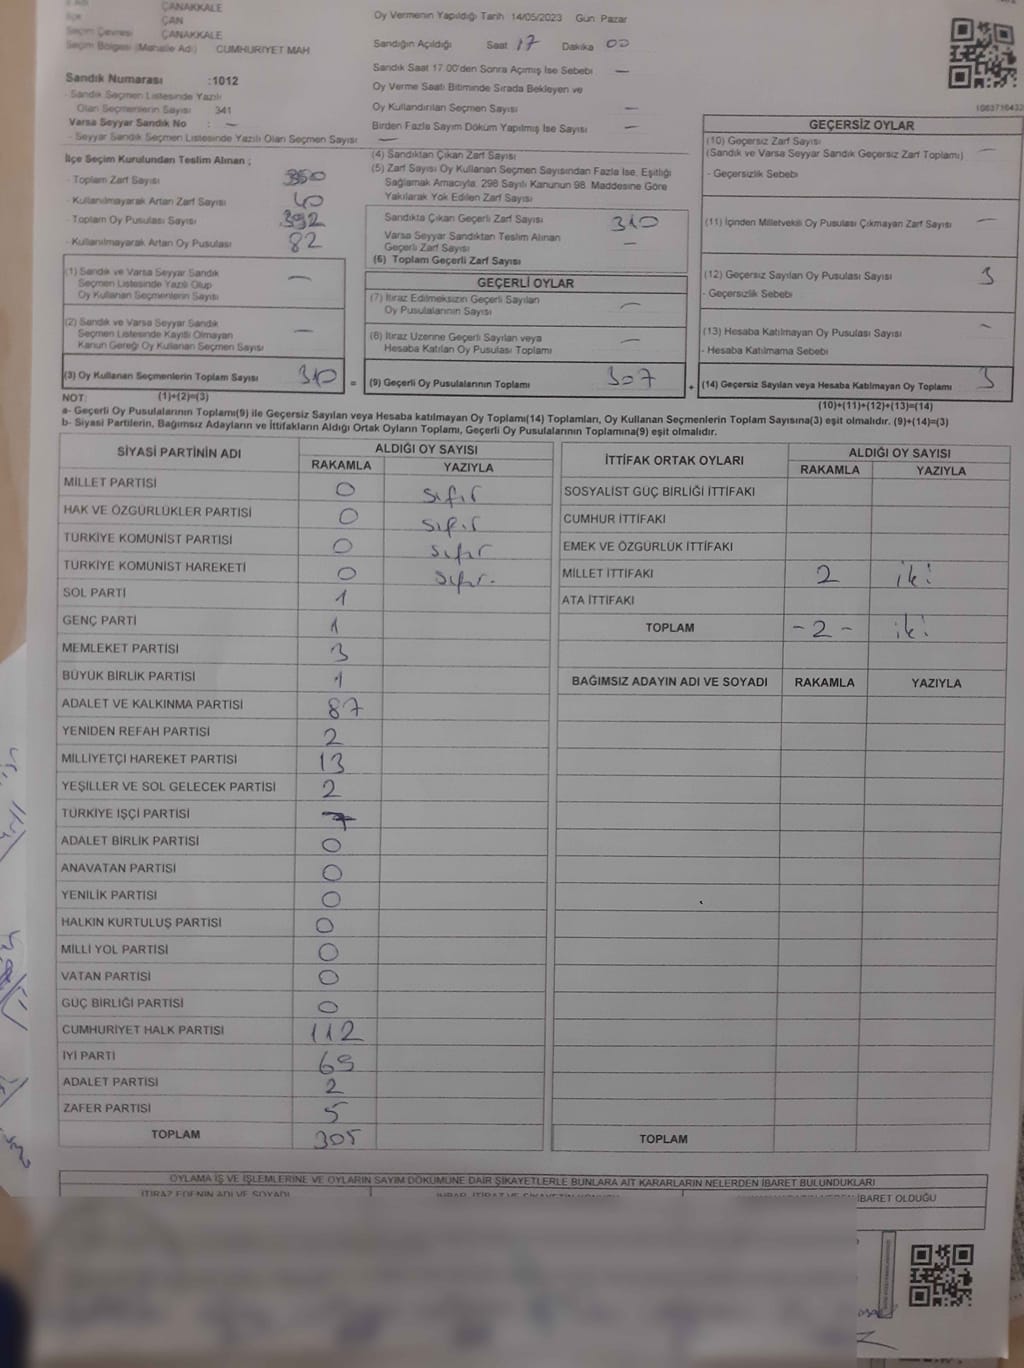 ÇANAKKALE
ÇAN
Seçim Çevresi ÇANAKKALE
Seçim Bölgesi (Mahalle Adı) CUMHURİYET MAH
Sandık Numarası :1012
- Sandık Seçmen Listesinde Yazılı
Olan Seçmenlerin Sayısı 341
Varsa Seyyar Sandık No : —
- Seyyar Sandık Seçmen Listesinde Yazılı Olan Seçmen Sayısı —
İlçe Seçim Kurulundan Teslim Alınan ;
- Toplam Zarf Sayısı 350
- Kullanılmayarak Artan Zarf Sayısı 40
- Toplam Oy Pusulası Sayısı 392
- Kullanılmayarak Artan Oy Pusulası 82
(1) Sandık ve Varsa Seyyar Sandık
Seçmen Listesinde Yazılı Olup
Oy Kullanan Seçmenlerin Sayısı —
(2) Sandık ve Varsa Seyyar Sandık
Seçmen Listesinde Kayıtlı Olmayan
Kanun Gereği Oy Kullanan Seçmen Sayısı —
(3) Oy Kullanan Seçmenlerin Toplam Sayısı 310 =
Oy Vermenin Yapıldığı Tarih 14/05/2023 Gün Pazar
Sandığın Açıldığı Saat 17 Dakika 00
Sandık Saat 17.00'den Sonra Açılmış İse Sebebi —
Oy Verme Saati Bitiminde Sırada Bekleyen ve
Oy Kullandırılan Seçmen Sayısı —
Birden Fazla Sayım Döküm Yapılmış İse Sayısı —
(4) Sandıktan Çıkan Zarf Sayısı
(5) Zarf Sayısı Oy Kullanan Seçmen Sayısından Fazla İse, Eşitliği
Sağlamak Amacıyla, 298 Sayılı Kanunun 98. Maddesine Göre
Yakılarak Yok Edilen Zarf Sayısı
Sandıkta Çıkan Geçerli Zarf Sayısı 310
Varsa Seyyar Sandıktan Teslim Alınan
Geçerli Zarf Sayısı —
(6) Toplam Geçerli Zarf Sayısı
GEÇERLİ OYLAR
(7) İtiraz Edilmeksizin Geçerli Sayılan
Oy Pusulalarının Sayısı —
(8) İtiraz Üzerine Geçerli Sayılan veya
Hesaba Katılan Oy Pusulası Toplamı —
(9) Geçerli Oy Pusulalarının Toplamı 307 +
GEÇERSİZ OYLAR
(10) Geçersiz Zarf Sayısı
(Sandık ve Varsa Seyyar Sandık Geçersiz Zarf Toplamı) —
- Geçersizlik Sebebi
(11) İçinden Milletvekili Oy Pusulası Çıkmayan Zarf Sayısı —
(12) Geçersiz Sayılan Oy Pusulası Sayısı 3
- Geçersizlik Sebebi
(13) Hesaba Katılmayan Oy Pusulası Sayısı —
- Hesaba Katılmama Sebebi
(14) Geçersiz Sayılan veya Hesaba Katılmayan Oy Toplamı 3
NOT: (1)+(2)=(3) (10)+(11)+(12)+(13)=(14)
a- Geçerli Oy Pusulalarının Toplamı(9) ile Geçersiz Sayılan veya Hesaba katılmayan Oy Toplamı(14) Toplamları, Oy Kullanan Seçmenlerin Toplam Sayısına(3) eşit olmalıdır. (9)+(14)=(3)
b- Siyasi Partilerin, Bağımsız Adayların ve İttifakların Aldığı Ortak Oyların Toplamı, Geçerli Oy Pusulalarının Toplamına(9) eşit olmalıdır.
SİYASİ PARTİNİN ADI ALDIĞI OY SAYISI
RAKAMLA YAZIYLA
MİLLET PARTİSİ 0 sıfır
HAK VE ÖZGÜRLÜKLER PARTİSİ 0 sıfır
TÜRKİYE KOMÜNİST PARTİSİ 0 sıfır
TÜRKİYE KOMÜNİST HAREKETİ 0 sıfır.
SOL PARTİ 1
GENÇ PARTİ 1
MEMLEKET PARTİSİ 3
BÜYÜK BİRLİK PARTİSİ 1
ADALET VE KALKINMA PARTİSİ 87
YENİDEN REFAH PARTİSİ 2
MİLLİYETÇİ HAREKET PARTİSİ 13
YEŞİLLER VE SOL GELECEK PARTİSİ 2
TÜRKİYE İŞÇİ PARTİSİ 7
ADALET BİRLİK PARTİSİ 0
ANAVATAN PARTİSİ 0
YENİLİK PARTİSİ 0
HALKIN KURTULUŞ PARTİSİ 0
MİLLİ YOL PARTİSİ 0
VATAN PARTİSİ 0
GÜÇ BİRLİĞİ PARTİSİ 0
CUMHURİYET HALK PARTİSİ 112
İYİ PARTİ 69
ADALET PARTİSİ 2
ZAFER PARTİSİ 5
TOPLAM 305
İTTİFAK ORTAK OYLARI ALDIĞI OY SAYISI
RAKAMLA YAZIYLA
SOSYALİST GÜÇ BİRLİĞİ İTTİFAKI
CUMHUR İTTİFAKI
EMEK VE ÖZGÜRLÜK İTTİFAKI
MİLLET İTTİFAKI 2 iki
ATA İTTİFAKI
TOPLAM -2- iki
BAĞIMSIZ ADAYIN ADI VE SOYADI RAKAMLA YAZIYLA
TOPLAM
OYLAMA İŞ VE İŞLEMLERİNE VE OYLARIN SAYIM DÖKÜMÜNE DAİR ŞİKAYETLERLE BUNLARA AİT KARARLARIN NELERDEN İBARET BULUNDUKLARI
İTİRAZ EDENİN ADI VE SOYADI
İBARET OLDUĞU